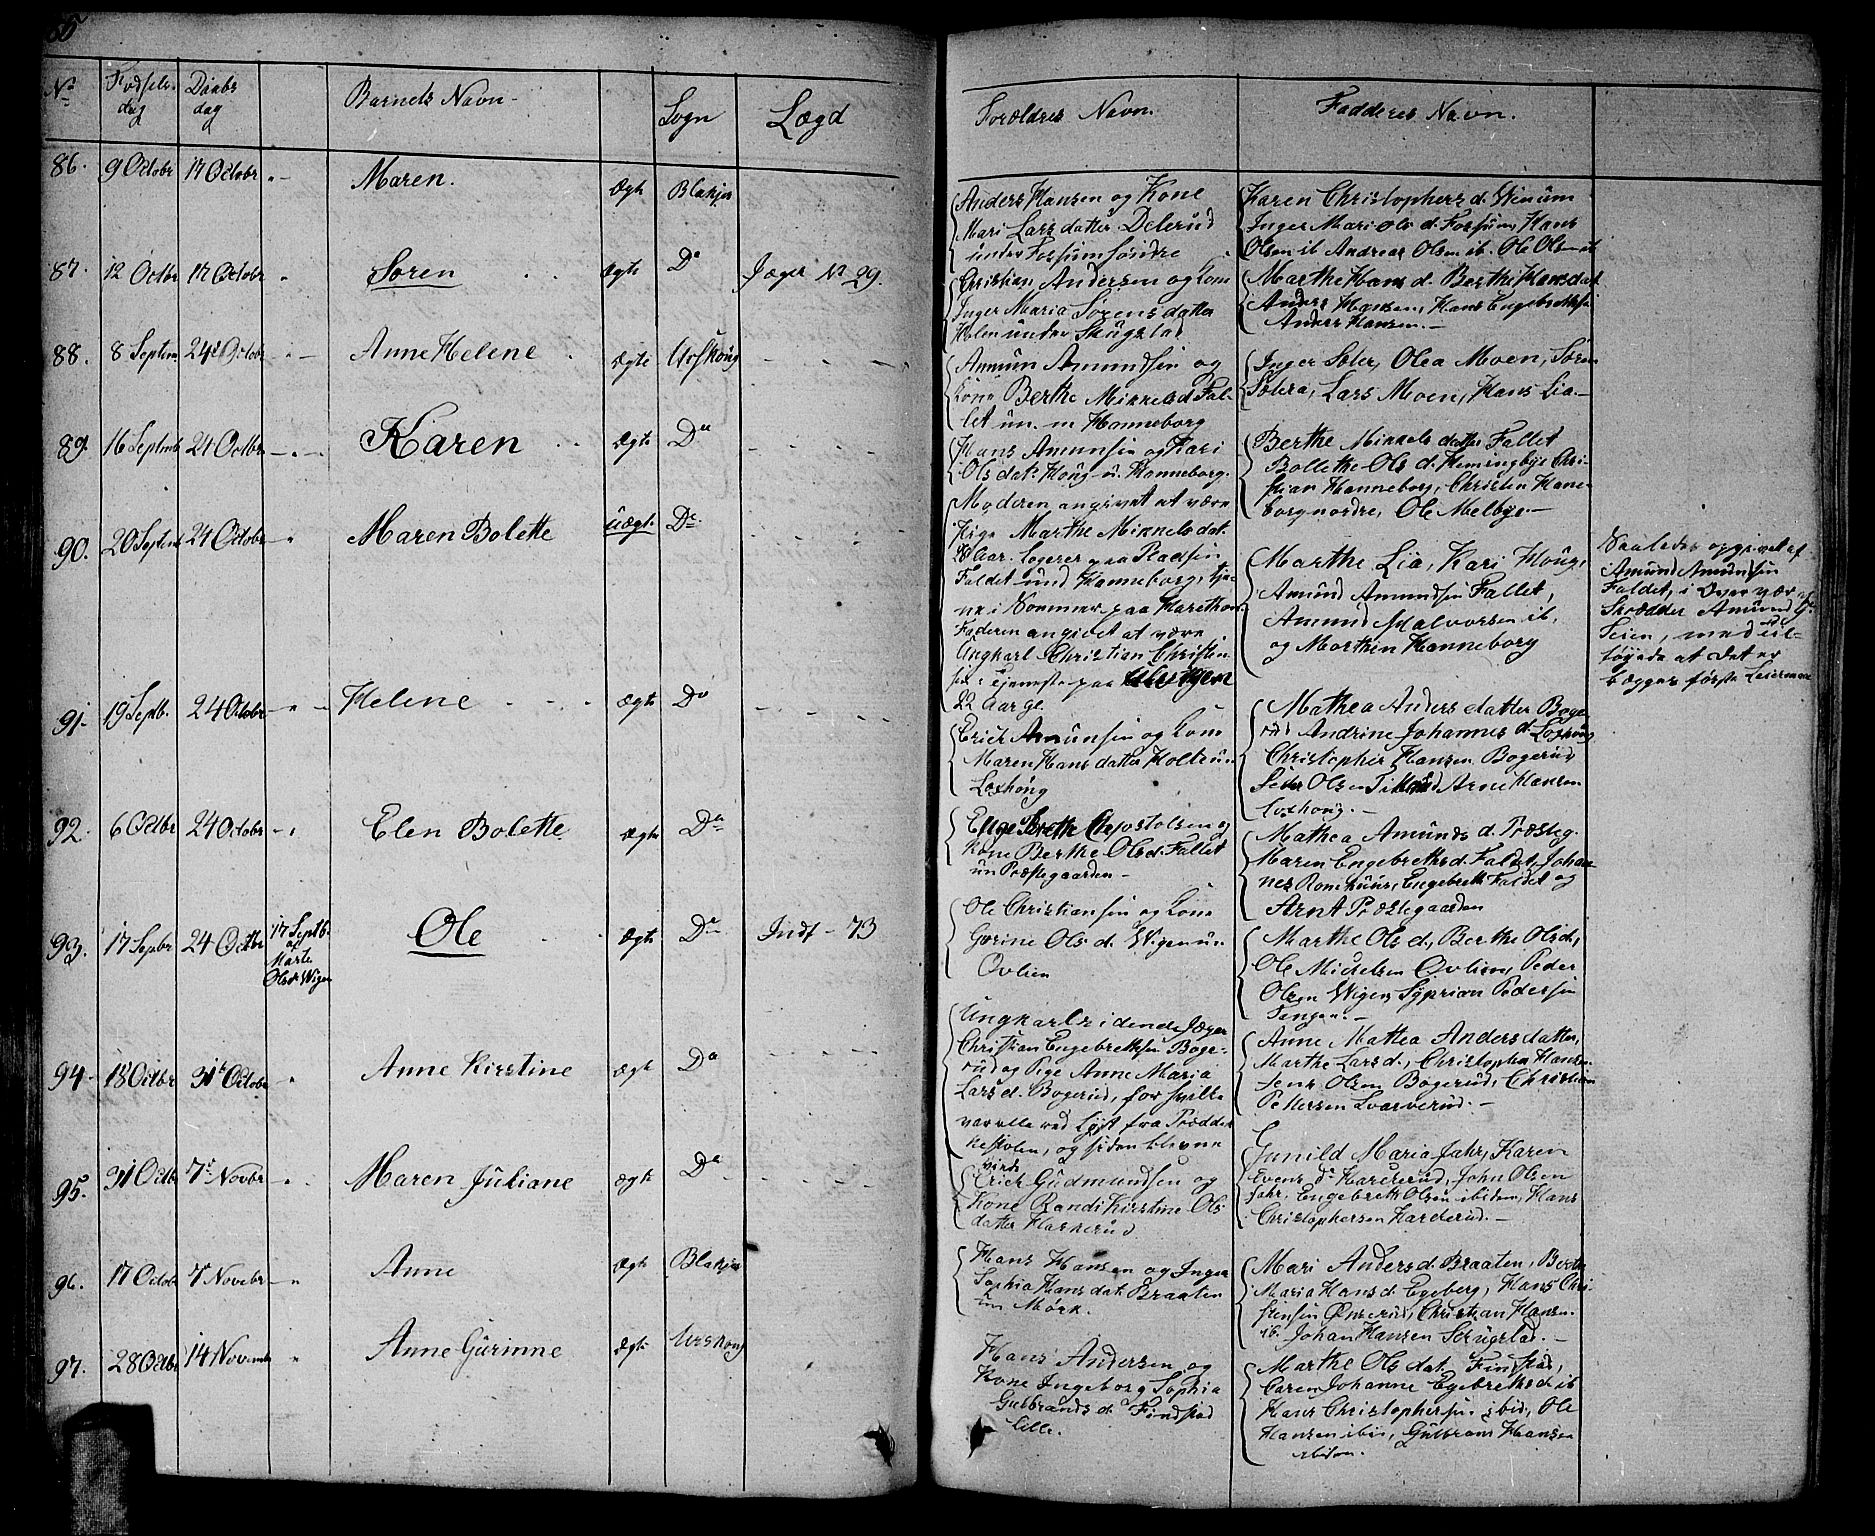 No
Fødsels-
dag
Daabs
dag
Barnets Navn-
Sogn
Lægd
Forældres Navn.
Fadderes Navn.
86. 9 Octobr 17 Octobr Maren. Ægte Blakjer
Anders Hansen og Kone
Mari Lars datter Delerud
under Fossum søndre
Karen Christophers d.
Inger Mari Ols d. Fossum, Hans
Olsen ib Andreas Olsen ib. Ole Olsen ib
87. 12 Octbr 17 Octobr Søren Ægte Do Jæger No 29.
Christian Andersen og Kone
Inger Maria Sørens datter
Holen under Skugstad
Marthe Hans d. Berthe Hansdat
Anders Hansen, Hans Engebrethsen
Anders Hansen.-
88. 8 Septem 24d Octobr Anne Helene Ægte Urskoug
Amun Amundsen og
Kone Berthe Mikkels d Fal-
let un. m Hanneborg
Inger Soler, Olea Moen, Søren
Solera, Lars Moen, Hans Lia.-
89. 16 Septmb 24 Octbr Karen Ægte Do
Hans Amunsen og Kari
Ols dat. Houg u. Hanneborg.
Berthe Mikkels datter Fallet
Bollethe Ols d. Hemingbye Chri-
stian Hanneborg, Christen Hane-
borg nordre, Ole Melbye.-
90. 20 Septemb 24 Octobr Maren Bolette Uægte Do
Moderen angivet at være
Pige Marthe Mikkels dat.
28 Aar. logerer paa Pladsen
Faldet und Hanneborg, tje-
ne i Sommer paa Harethon
Faderen angivet at være
Ungkarl Christian Christen-
sen i tjeneste paa
22 Aar ge.
Marthe Lia, Kari Houg,
Amund Amundsen Fallet,
Amund Halvorsen ib,
og Marthin Hanneborg
Saaledes opgivet af
Amund Amundsen
Faldet, i Overvær af
Skrædder Amund
Seien, med til-
føyede at det er
begges første Leiermaal
91. 19 Septb. 24 Octobr Helene Ægte Do
Erick Amunsen og Kone
Maren Hans datter Holte un.
Loxhoug
Mathea Anders datter Boge-
rud Andrine Johannes d. Loxhoug
Christopher Hansen Bogerud
Peder Olsen Arne Hansen
Loxhoug.-
92. 6 Octbr 24 Octobr Elen Bolette Ægte Do
Enge Breth Chrostolsen og
Kone Berthe Ols d. Fallet
un Præstegaarden-
Mathea Amunds d. Præsteg.
Maren Engebreths d. Faldet, Johan-
nes Romhuus, Engebreth Faldet og
Arnt Præstegaarden
93. 17 Sepbr 24 Octbr 17 Septb. Ole Ægte Do Indf - 73
af
Marte
Olsd. Wigen
Ole Christiansen og Kone
Gorine Ols d. Wigen un.
Ovlien
Marthe Ols d., Berthe Olsd.,
Ole Michelsen Ovlien, Peder
Olsen Wigen, Syprian Pedersen
Tangen.-
94. 18 Octbr 31te Octobr Anne Kirstine Ægte Do
Ungkarl ridende Jæger
Christian Engebrethsen Boge-
rud og Pige Anne Maria
Lars d. Bogerud, for hvilke
var alle ved Lyst fra Præddi-
kestolen, og siden blevne
viede
Anne Mathea Anders datter,
Marthe Lars d., Christopher Hansen
Jens Olsen Bogerud, Christian
Pettersen Lvarverud.-
95. 31 Octbr 7de Novbr Maren Juliane Ægte Do
Erick Gudmundsen og
Kone Randi Kirstine Ols
datter Haskerud
Gunild Maria Jahr, Karen
Evens d. Harderud, John Olsen
Jahr, Engebreth Olsen ibidem, Hans
Christophersen Harderud.-
96. 17 Octob 7de Novebr Anne Ægte Blakjer
Hans Hansen og Inger
Sophia Hans dat. Braaten
un Mork.
Mari Anders d. Braaten, Berthe
Maria Hans d. Egeberg, Hans Chri-
stensen Christian Hansen
ib. Johan Hansen Scugstad.-
97. 28 Octbr 14 Novemb Anne Gurinne Ægte Urskoug
Hans Andersen og
Kone Ingeborg Sophia
Gulbrands d. Findstad
Lille.
Marthe Ols dat. Finstad,
Caren Johanne Egebreths d. ib
Hans Christophersen ibid, Ole
Hansen ibid, Gulbran Hansen
ibidem.